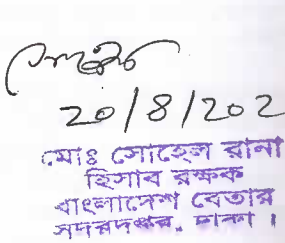 20/8/202
মোঃ সোহেল রানা
হিসাব রক্ষক
বাংলাদেশ বেতার
সদরদপ্তর, ঢাকা।